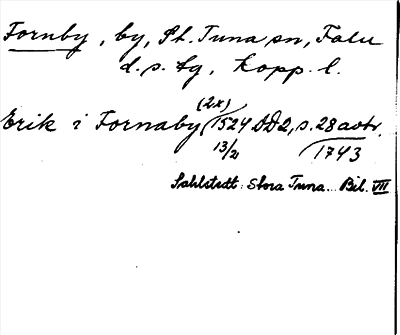 Fornby, by, St. Tuna sn, Falu
d. s. tg, Kopp. l.
(2x)
Erik i Fornaby 1524 DD2, s. 28 avtr.
13/2 1743
Sahlstedt: Stora Tuna... Bil. VII